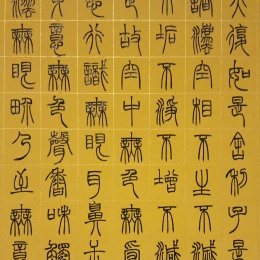 亦復如是舍利子是
諸法空相不生不滅
不垢不淨不增不減
是故空中無色無受
想行識無眼耳鼻舌
身意無色聲香味觸
法無眼界乃至無意